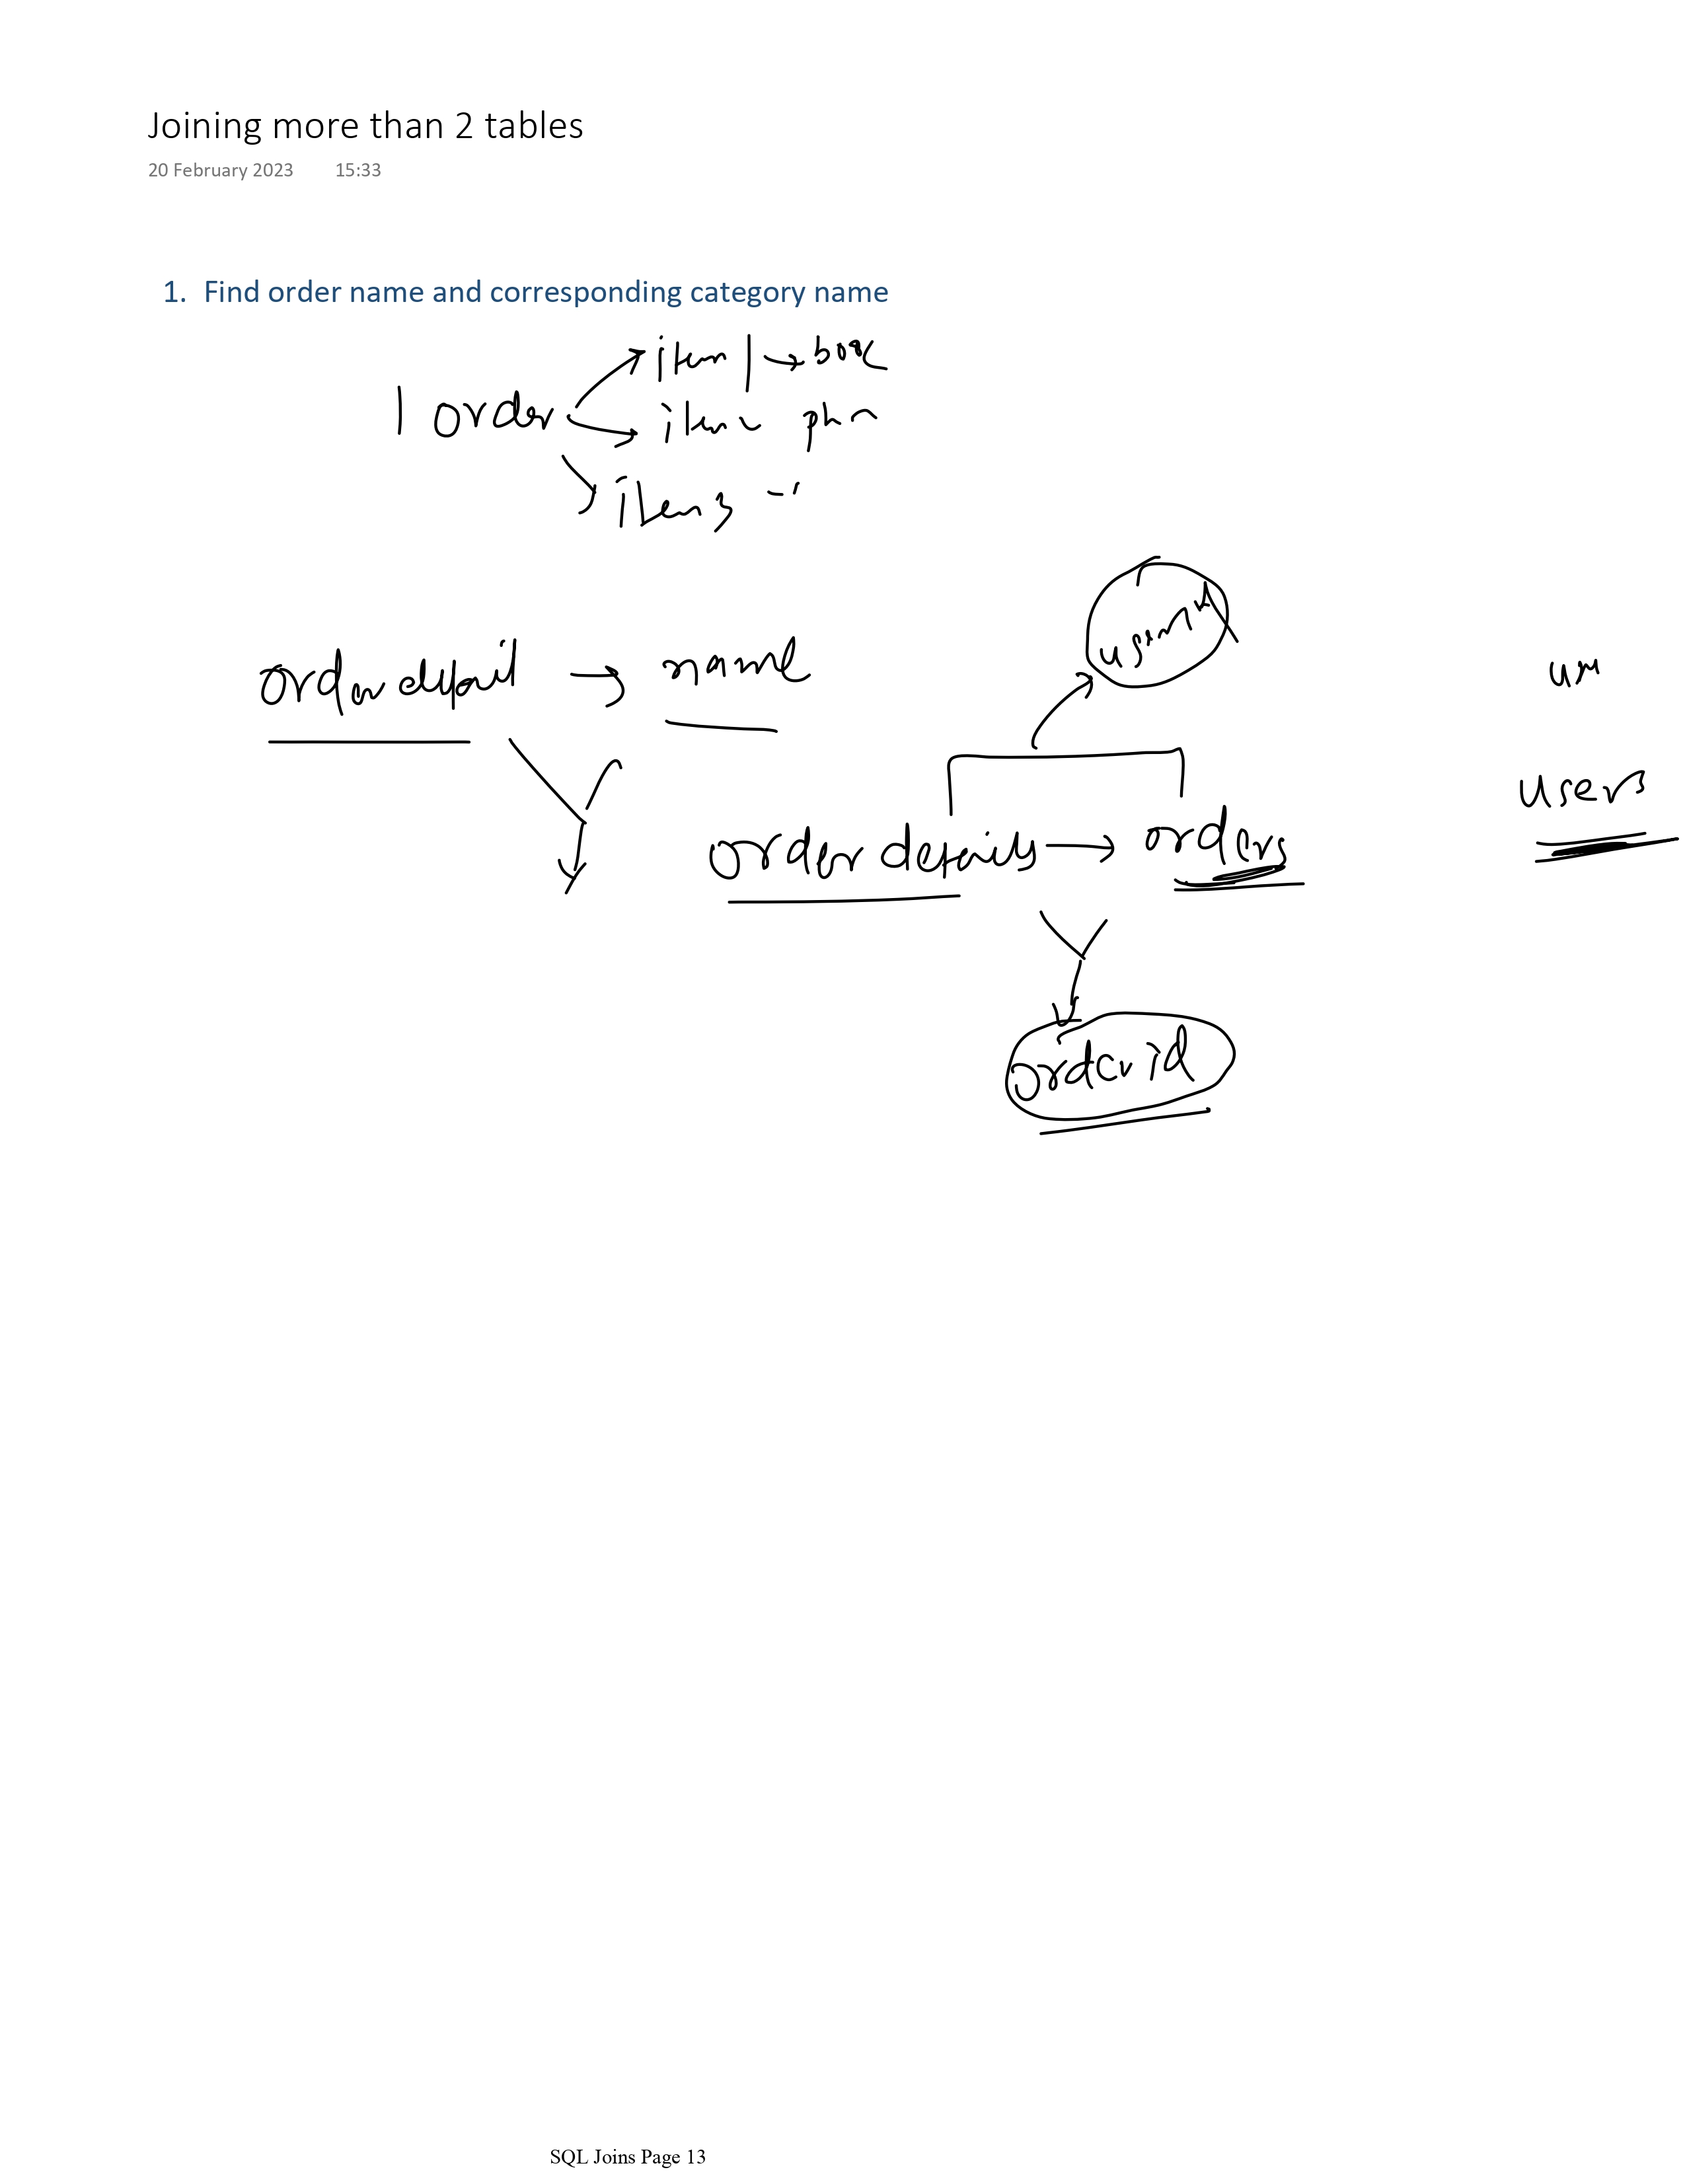 Joining more than 2 tables
20 February 2023 15:33
1. Find order name and corresponding category name
item 1 → book
1 order
item
item 3
order detail → name
users
order details → orders
order id
SQL Joins Page 13